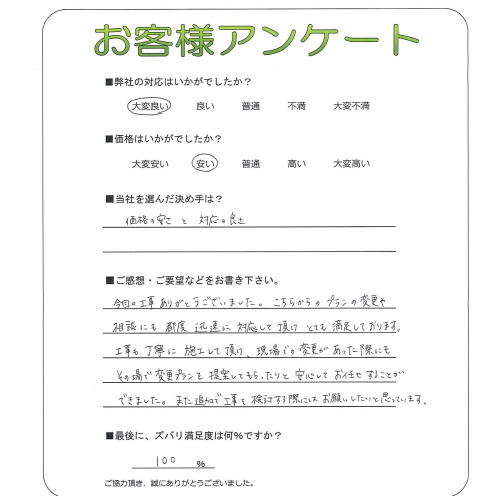 お客様アンケート
■弊社の対応はいかがでしたか？
大変良い 良い 普通 不満 大変不満
■価格はいかがでしたか？
大変安い 安い 普通 高い 大変高い
■当社を選んだ決め手は？
価格の安さ と 対応の良さ
■ご感想・ご要望などをお書き下さい。
今回の工事ありがとうございました。こちらからのプランの変更や
相談にも都度迅速に対応して頂けとても満足しております。
工事も丁寧に施工して頂け、現場での変更があった際にも
その場で変更プランを提案してもらったりと安心してお任せすることが
できました。また追加で工事を検討する際にはお願いしたいと思っています。
■最後に、ズバリ満足度は何％ですか？
100 ％
ご協力頂き、誠にありがとうございました。